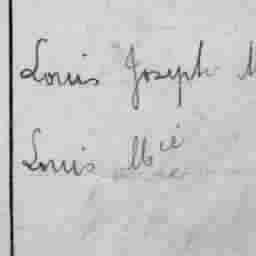 Louis Joseph M
Louis Mcié